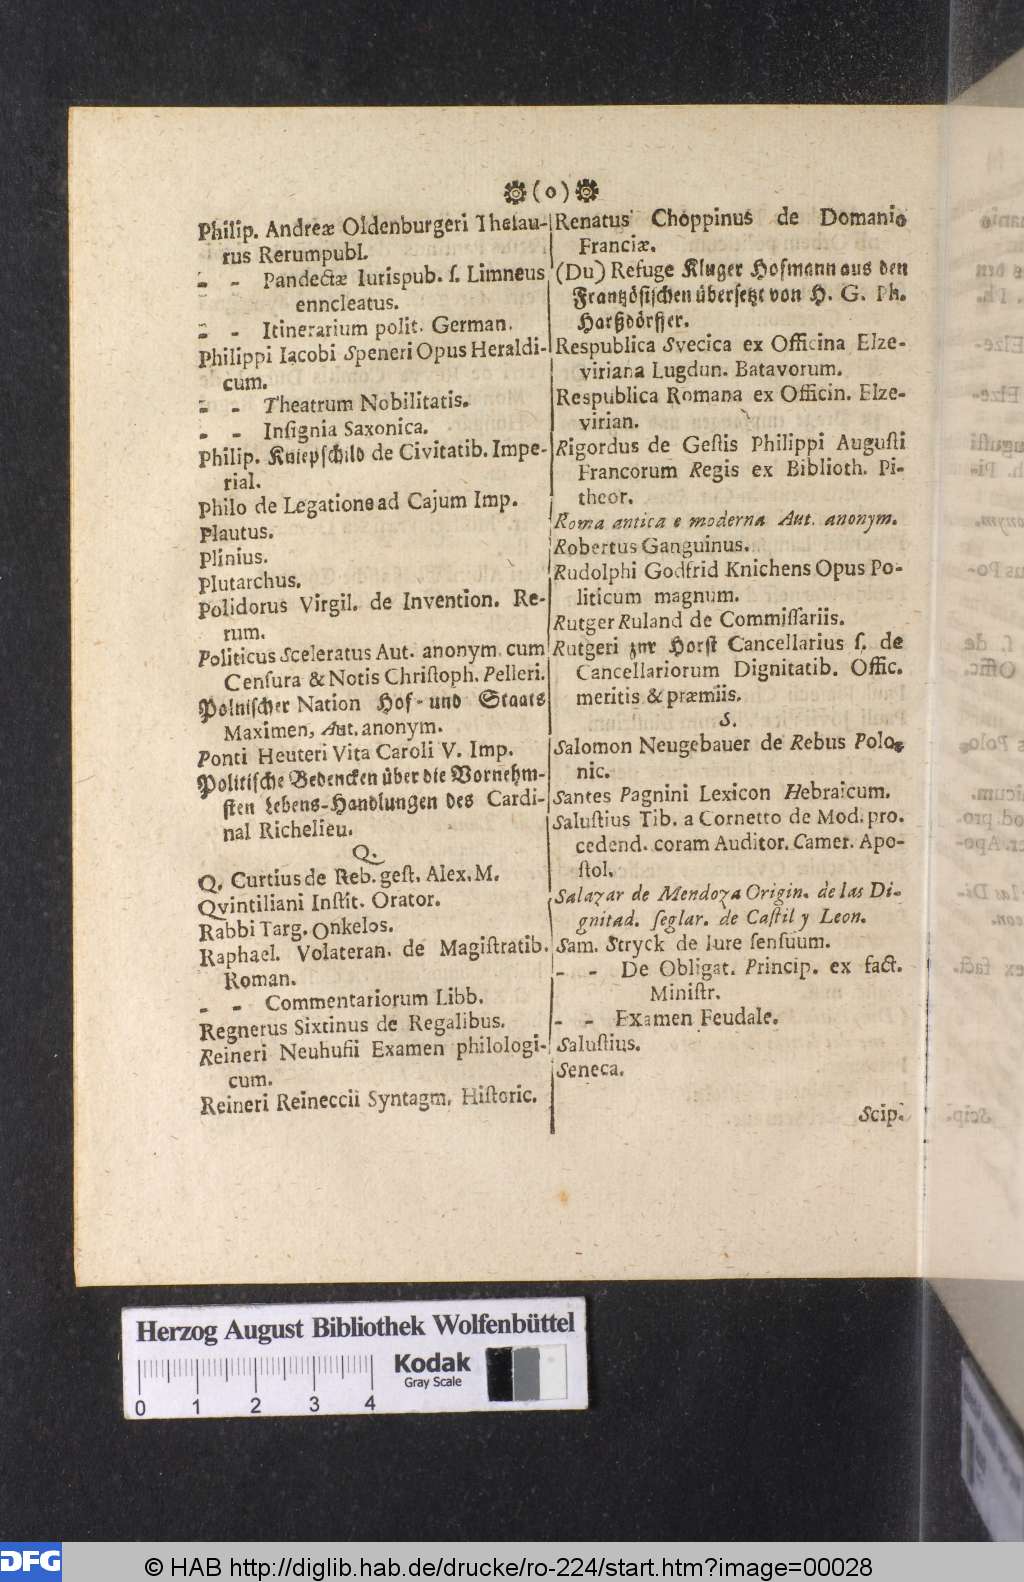 (o)
Philip. Andreæ Oldenburgeri Theſau-
rus Rerumpubl.
- - Pandectæ Iurispub. ſ. Limneus
enncleatus.
- - Itinerarium polit. German.
Philippi Iacobi Speneri Opus Heraldi-
cum.
- - Theatrum Nobilitatis.
- - Inſignia Saxonica.
Philip. Knipſchild de Civitatib. Impe-
rial.
Philo de Legatione ad Cajum Imp.
Plautus.
Plinius.
Plutarchus.
Polidorus Virgil. de Invention. Re-
rum.
Politicus Sceleratus Aut. anonym. cum
Cenſura & Notis Chriſtoph. Pelleri.
Polniſcher Nation Hof- und Staats
Maximen, Aut. anonym.
Ponti Heuteri Vita Caroli V. Imp.
Politiſche Bedencken über die Vornehm-
ſten Lebens-Handlungen des Cardi-
nal Richelieu.
Q.
Q. Curtius de Reb. geſt. Alex. M.
Qvintiliani Inſtit. Orator.
Rabbi Targ. Onkelos.
Raphael. Volateran. de Magiſtratib.
Roman.
- - Commentariorum Libb.
Regnerus Sixtinus de Regalibus.
Reineri Neuhuſii Examen philologi-
cum.
Reineri Reineccii Syntagm. Hiſtoric.
Renatus Choppinus de Domanio
Franciæ.
(Du) Refuge Kluger Hofmann aus den
Frantzöſiſchen überſetzt von H. G. Ph.
Harßdörffer.
Respublica Svecica ex Officina Elze-
viriana Lugdun. Batavorum.
Respublica Romana ex Officin. Elze-
virian.
Rigordus de Geſtis Philippi Auguſti
Francorum Regis ex Biblioth. Pi-
theor.
Roma antica e moderna Aut. anonym.
Robertus Ganguinus.
Rudolphi Godfrid Knichens Opus Po-
liticum magnum.
Rutger Ruland de Commiſſariis.
Rutgeri zur Horſt Cancellarius ſ. de
Cancellariorum Dignitatib. Offic.
meritis & præmiis.
S.
Salomon Neugebauer de Rebus Polo-
nic.
Santes Pagnini Lexicon Hebraicum.
Saluſtius Tib. a Cornetto de Mod. pro.
cedend. coram Auditor. Camer. Apo-
ſtol.
Salazar de Mendoza Origin. de las Di-
gnitad. ſeglar. de Caſtil y Leon.
Sam. Stryck de Iure ſenſuum.
- - De Obligat. Princip. ex fact.
Miniſtr.
- - Examen Feudale.
Saluſtius.
Seneca.
Scip.
Herzog August Bibliothek Wolfenbüttel
Kodak
Gray Scale
0 1 2 3 4
DFG
© HAB http://diglib.hab.de/drucke/ro-224/start.htm?image=00028